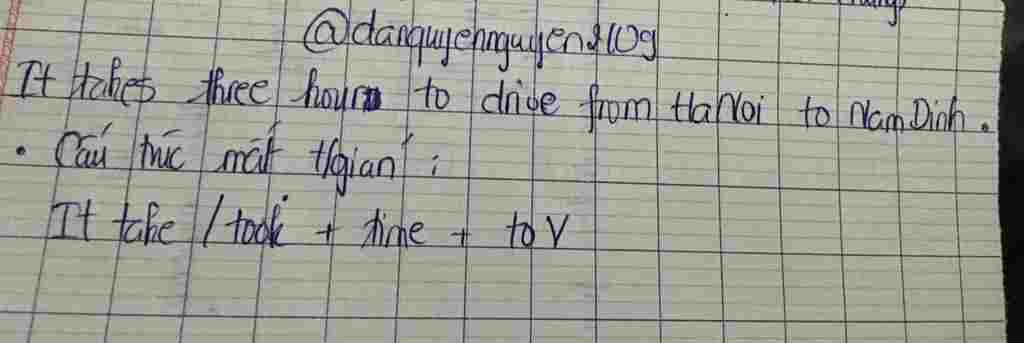 @danquyennguyen2109
It takes three hours to drive from HaNoi to NamDinh.
• Cấu trúc mất t/gian :
It take / took + time + to V